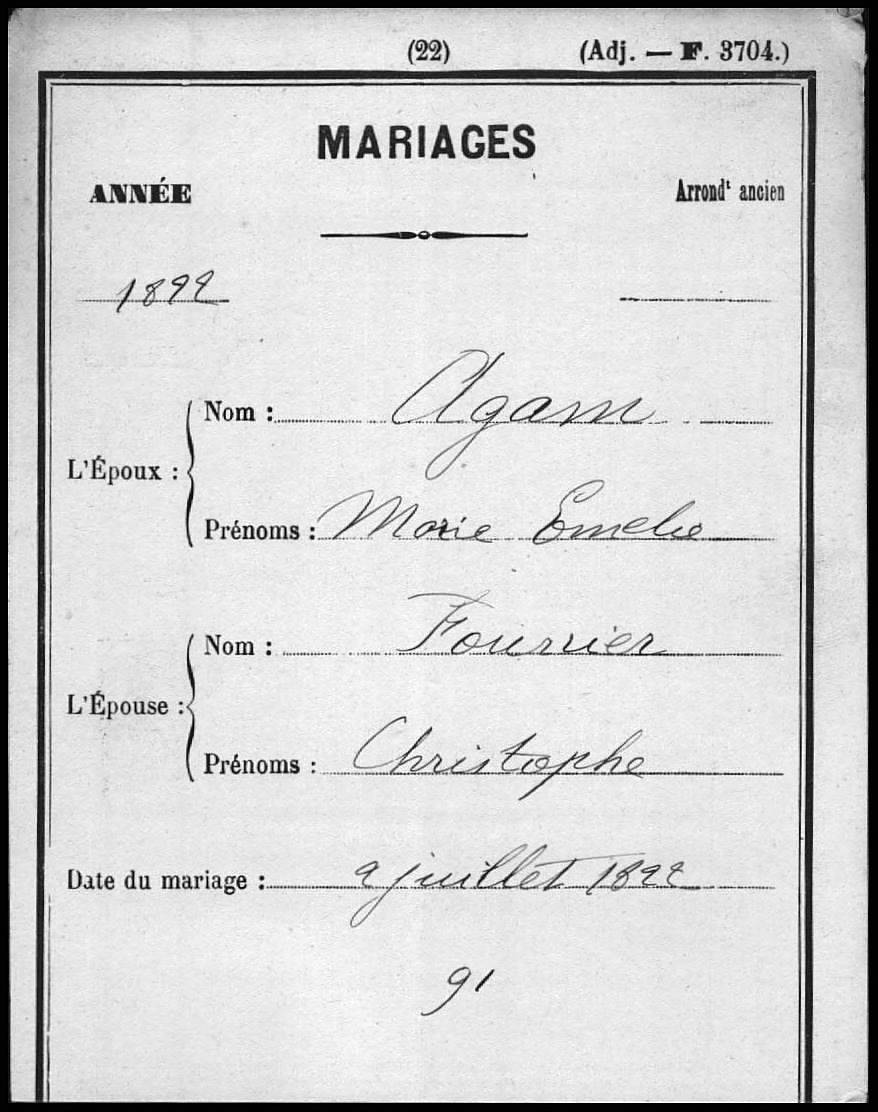 (22) (Adj. — F. 3704.)
MARIAGES
ANNÉE Arrondᵗ ancien
1822
Nom : Agam
L'Époux :
Prénoms : Marie Emelie
Nom : Fourrier
L'Épouse :
Prénoms : Christophe
Date du mariage : 2 juillet 1822
91